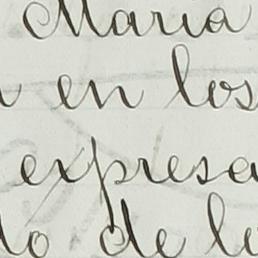 Maria
en los
expresa
do de lo